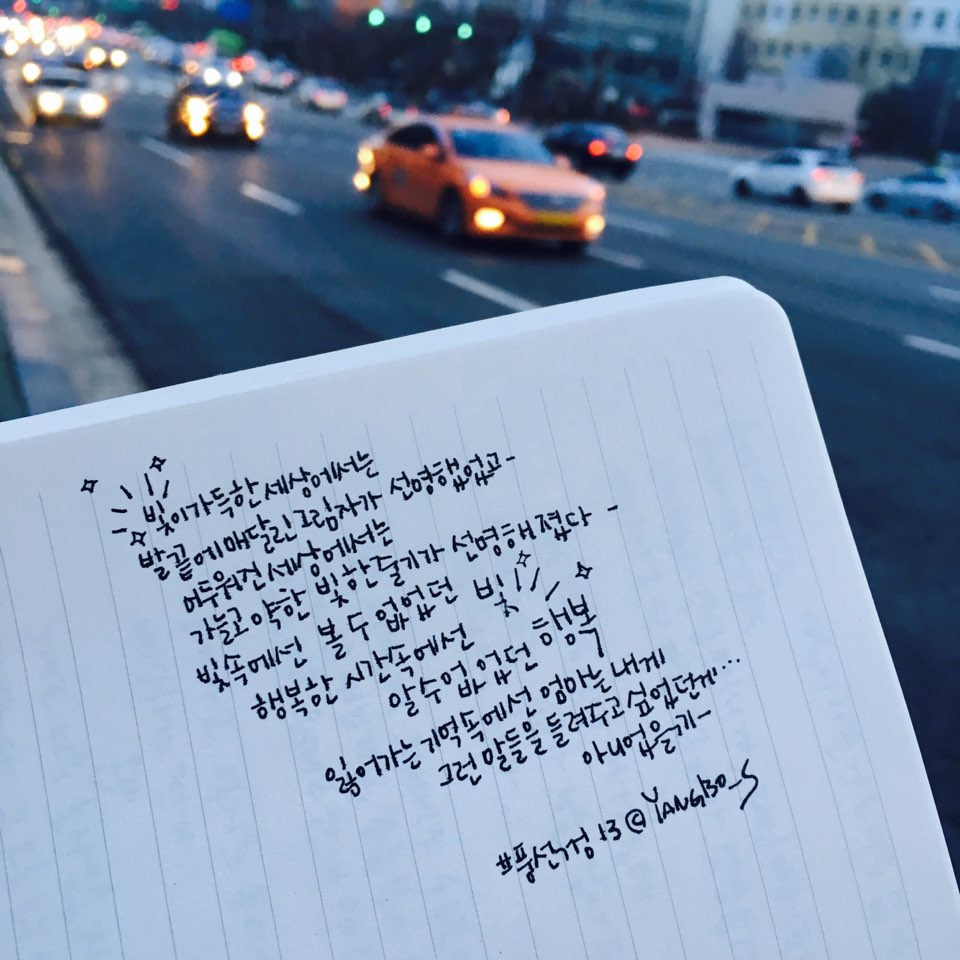 빛이 가득한 세상에서는
발 끝에 매달린 그림자가 선명했었고-
어두워진 세상에서는
가늘고 약한 빛 한 줄기가 선명해졌다-
빛 속에선 볼 수 없었던 빛
행복한 시간 속에선
알 수 없었던 행복
잃어가는 기억 속에선 엄마는 내게
그런 말들을 들려주고 싶었던 게...
아니었을까-
#풍선껌 13 @YANGBO_S